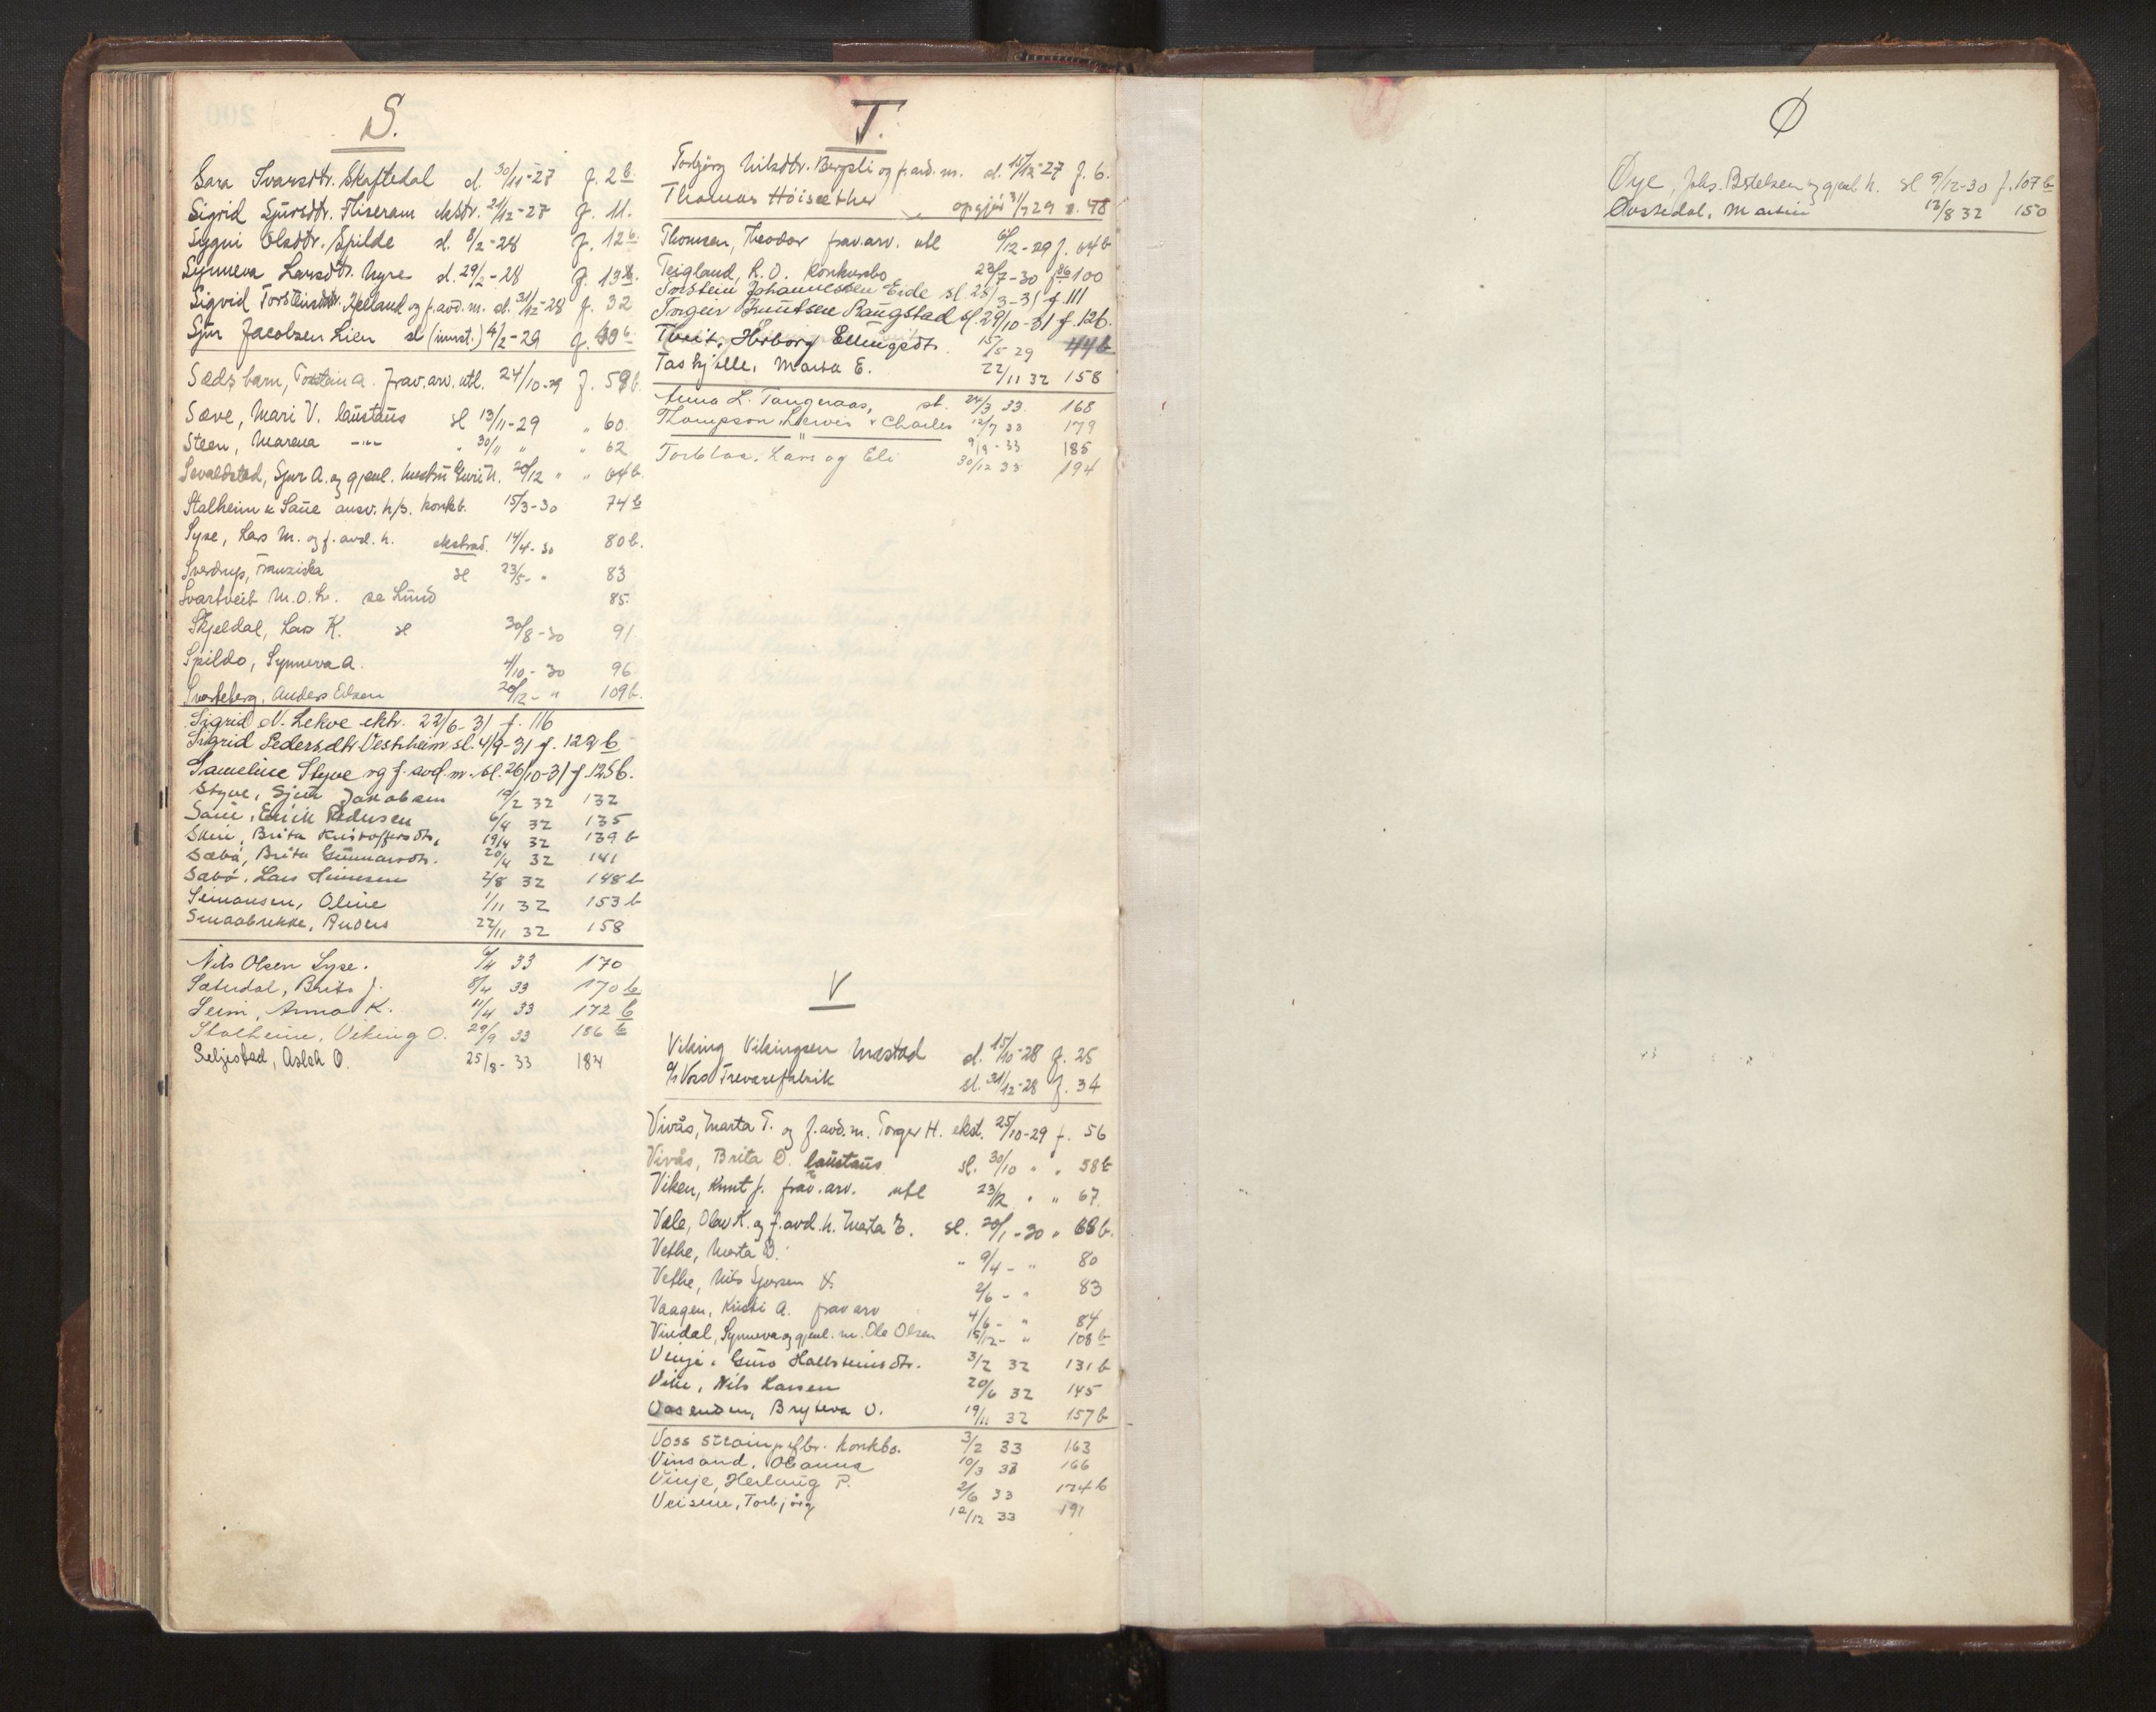 S.
Sara Ivarsdtr. Skaftedal d. 30/11-27 f. 2 b
Sigrid Sjursdtr. Fliseram ekstr. 21/12-27 f. 11.
Sygni Olsdtr. Spilde sl. 8/2-28 f. 12 b
Synneva Larsdtr. Nyre d. 29/2-28 f. 13 b.
Sigrid Torsteinsdtr. Kjelland og f. avd. m. d. 31/12-28 f. 32
Sjur Jacobsen Lien sl (innst.) 4/2-29 f. 39 b
Sæds barn, Torstein a. frav. arv. utl. 24/10-29 f. 58 b.
Sæve, Mari V. laustaus sl 13/11-29 " 60.
Steen, Marena -"- " 30/11 " " 62
Sevaldstad, Sjur A. og gjenl. hustru Guri N. 20/12 " " 64 b.
Stalheim & Saue ansv. h/s. konkb. 15/3-30 74 b
Syse, Lars M. og f. avd. h. ekstrad. 14/4-30 80 b.
Sverdrup, Franziska sl 23/5- " 83
Svartveit M.O.L. se Lund 85.
Skjeldal, Lars K. sl 30/8-30 91
Spildo, Synneva A. 4/10-30 96
Svarteberg, Anders Edsen 20/12- " 109 b.
Sigrid N. Lekve ektr. 22/6-31 f. 116
Sigrid Pedersdtr Vestrheim sl. 4/9-31 f. 122 b
Sameline Styve og f. avd. m. sl. 26/10-31 f. 125 b.
Styve, Sjur Jakobsen 10/2 32 132
Saue, Erick Pedersen 6/4 32 135
Skeie, Brita Kristoffersdtr. 19/4 32 139 b
Sæbø, Brita Gunnarsdtr. 20/4 32 141
Sæbø, Lars Hennesen 2/8 32 148 b
Simonsen, Oline 1/11 32 153 b
Smaabrekke, Anders 22/11 32 158
Nils Olsen Syse. 6/4 33 170
Sæterdal, Brita J. 8/4 33 170 b
Seim, Anna K. 11/4 33 172 b
Stalheim, Viking O. 29/9 33 186 b
Seljestad, Aslak O. 25/8-33 184
T.
Torbjørg Nilsdtr. Bergsli og f. avd. m. d. 15/12-27 f. 6.
Thomas Høisæther opgjör 31/7 29 s. 48
Thomsen, Theodor frav. arv. utl 6/12-29 f. 64 b
Teigland, K. O. konkursbo 23/7-30 86 100
Torstein Johannessen Eide sl. 28/3-31 f. 111
Torgeir Knutsen Raugstad sl. 29/10-31 f. 126.
Tveit, Herborg Ellingsdtr. 15/5 29 44 b
Taskjelle, Marta E. 22/11 32 158
Anna L. Tangeraas, st. 24/3 33. 168
Thompson Lewis & Charles 12/7 33 179
" 9/9-33 185
Torblaa, Lars og Eli 30/12 33 194
V
Viking Vikingsen Mæstad d. 15/10-28 f. 25
A/s Voss Trevarefabrik sl. 31/12-28 f. 34
Vivås, Marta T. og f. avd. m. Torger H. ekst. 25/10-29 f. 56
Vivås, Brita D. laustaus sl. 30/10 " " 58 b
Viken, Knut J. frav. arv. utl 23/12 " " 67
Væle, Olav K. og f. avd. h. Marta E. sl. 20/1-30 " 68 b.
Vethe, Marta D. " 9/4- " 80
Vethe, Nils Sjursen V. 2/6- " 83
Vaagen, Kristi A. frav arv 4/6- " 84
Vindal, Synneva og gjenl. m. Ole Olsen 15/12- " 108 b
Vinje, Guro Hallsteinsdtr. 3/2 32 131 b
Vike, Nils Larsen 20/6 32 145
Vasenden, Bryteva O. 19/11 32 157 b
Voss strømpefbr. konkbo. 3/2 33 163
Vinsand, Johanna 10/3 33 166
Vinje, Herlaug P. 2/6 33 174 b
Veisene, Torbjørg 12/12 33 191
Ø
Øye, Johs. Botelsen og gjenl. h. sl 9/12-30 f. 107 b
Øvstedal, Martin 12/8 32 150